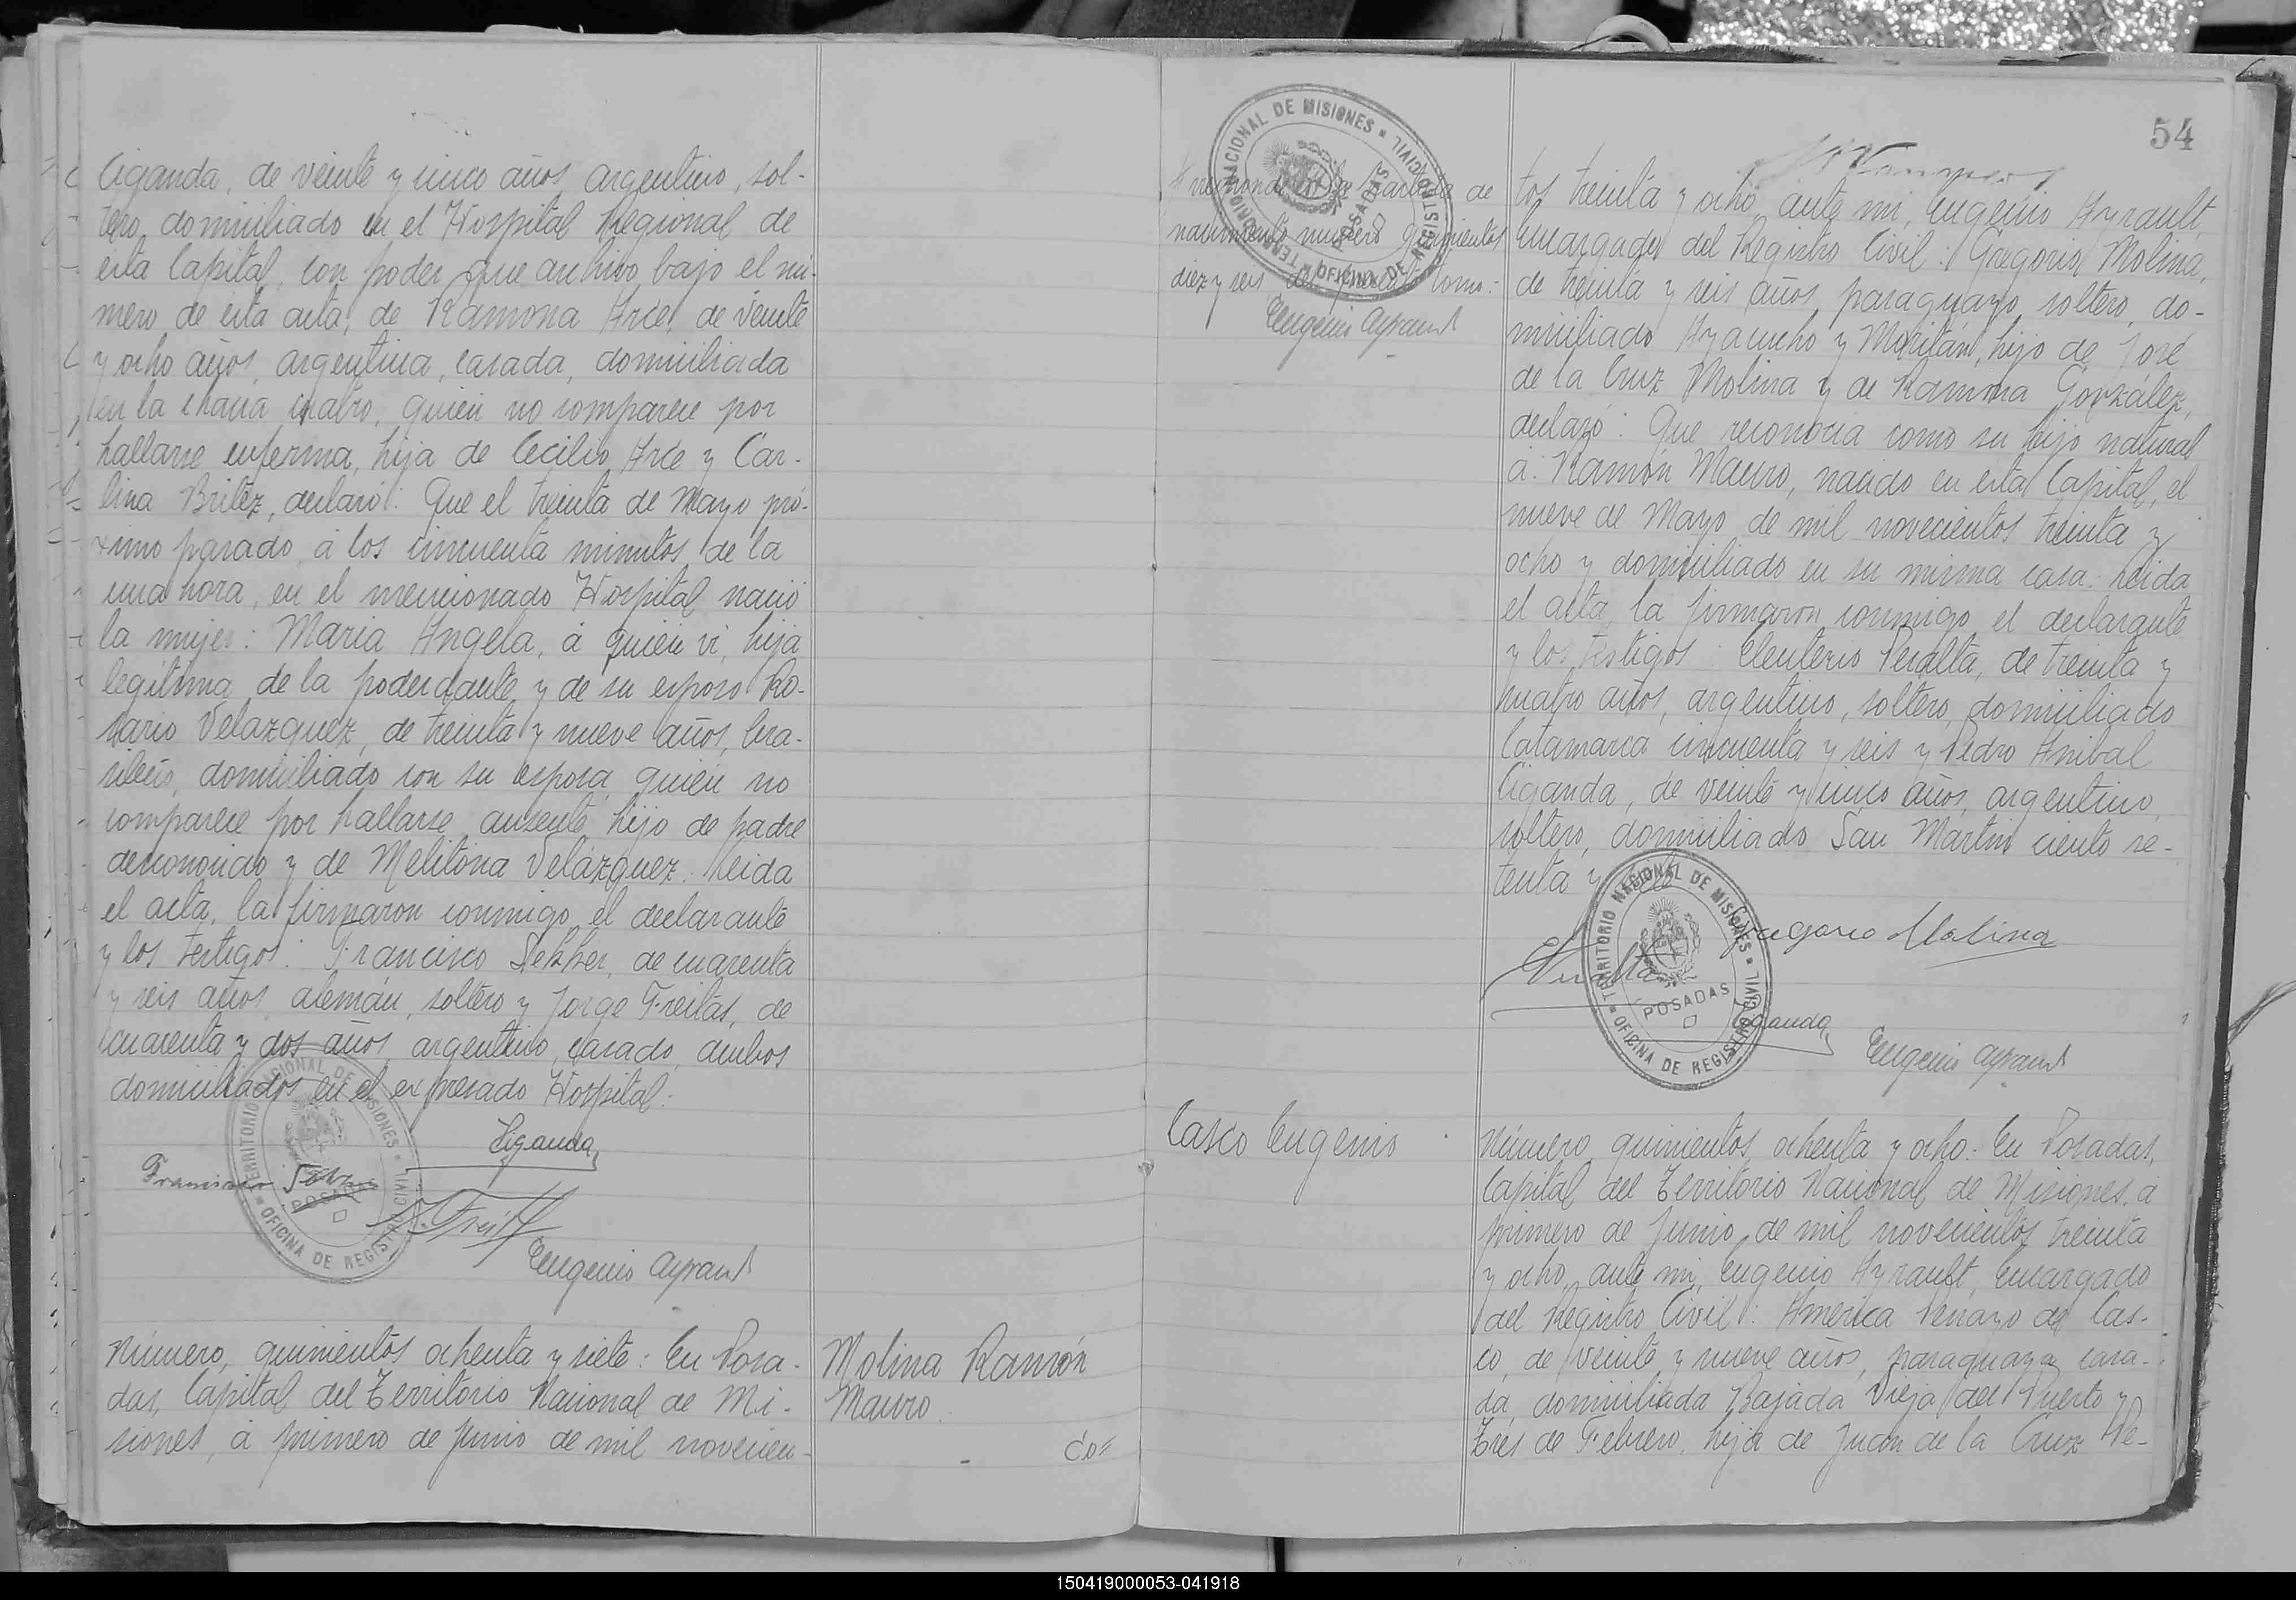 Ciganda, de veinte y cinco años, argentino, sol-
tero, domiciliado en el Hospital Regional de
esta Capital, con poder que archivo bajo el nú-
mero de esta acta, de Ramona Arce, de veinte
y ocho años, argentina, casada, domiciliada
en la chacra cuatro, quien no comparece por
hallarse enferma, hija de Cecilio Arce y Car-
lina Britez, declaró: Que el treinta de Mayo pró-
ximo pasado, á los cincuenta minutos de la
una hora, en el mencionado Hospital nació
la mujer: Maria Angela, á quien vi, hija
legítima de la poderdante y de su esposo Ro-
sario Velazquez, de treinta y nueve años, bra-
sileño, domiciliado con su esposa, quien no
comparece por hallarse ausente, hijo de padre
desconocido y de Melitona Velázquez. Leida
el acta, la firmaron conmigo el declarante
y los testigos: Francisco Sekker, de cuarenta
y seis años, alemán, soltero y Jorge Freitas, de
cuarenta y dos años, argentino, casado, ambos
domiciliados en el expresado Hospital.
Ciganda
Francisco
J. Freitas
Eugenio Ayrault
TERRITORIO NACIONAL DE MISIONES
POSADAS
OFICINA DE REGISTRO CIVIL
Número quinientos ochenta y siete: En Posa-
das, Capital del Territorio Nacional de Mi-
siones, á primero de Junio de mil novecien-
Molina Ramón
Mauro.
54
TERRITORIO NACIONAL DE MISIONES
POSADAS
OFICINA DE REGISTRO CIVIL
de
nacimiento número quinientos
diez y seis del tomo:
Eugenio Ayrault
tos treinta y ocho, ante mi, Eugenio Ayrault,
Encargado del Registro Civil: Gregorio Molina,
de treinta y seis años, paraguayo, soltero, do-
miciliado Ayacucho y Moritán, hijo de José
de la Cruz Molina y de Ramona González,
declaró: Que reconocía como su hijo natural
á: Ramón Mauro, nacido en esta Capital, el
nueve de Mayo de mil novecientos treinta y
ocho y domiciliado en su misma casa. Leida
el acta, la firmaron conmigo el declarante
y los testigos: Eleuterio Peralta, de treinta y
cuatro años, argentino, soltero, domiciliado
Catamarca cincuenta y seis y Pedro Anibal
Ciganda, de veinte y cinco años, argentino,
soltero, domiciliado San Martin ciento se-
tenta y
Gregorio Molina
Peralta
Ciganda
Eugenio Ayrault
TERRITORIO NACIONAL DE MISIONES
POSADAS
OFICINA DE REGISTRO CIVIL
Casco Eugenio
Número quinientos ochenta y ocho: En Posadas,
Capital del Territorio Nacional de Misiones, á
primero de Junio de mil novecientos treinta
y ocho, ante mi, Eugenio Ayrault, Encargado
del Registro Civil: America Penayo de Cas-
co, de veinte y nueve años, paraguaya, casa-
da, domiciliada Bajada Vieja del Puerto y
Tres de Febrero, hija de Juan de la Cruz Pe-
150419000053-041918